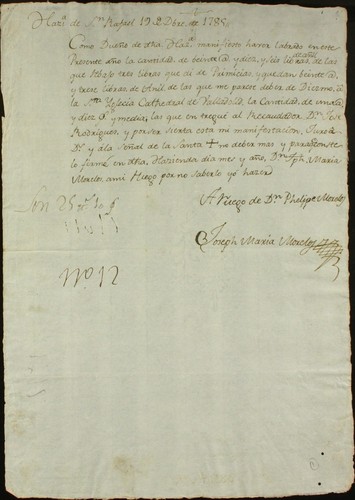 Haz.ª de S.n Rafael 19 de Dbre. de 1785
Como Dueño de dha Haz.ª manifiesto haver labrado en este
Presente año la cantidad de beinte @ y diez, y seis libras de añil de las
que Rbajo tres libras que di de Primicias, y quedan beinte @,
y trece libras de Añil de las que me parece deber de Diezmo, á
la S.ta Yglecia Cathedral de Valladolid, la Cantidad, de una @,
y diez y media, las que en tregue al Recaudador D.n José
Rodrigues, y por ser sierta esta mi manifestacion, Juro á
D.s y ála Señal de la Santa + no deber mas y para que conste
lo firmé en dha, Hazienda dia mes y año, D.n Jph. Maria
Morelos, ami Ruego por no saberlo yo hazer
A Ruego de D.n Phelipe Morelos
Joseph Maria Morelos
Son 25
N.º 12